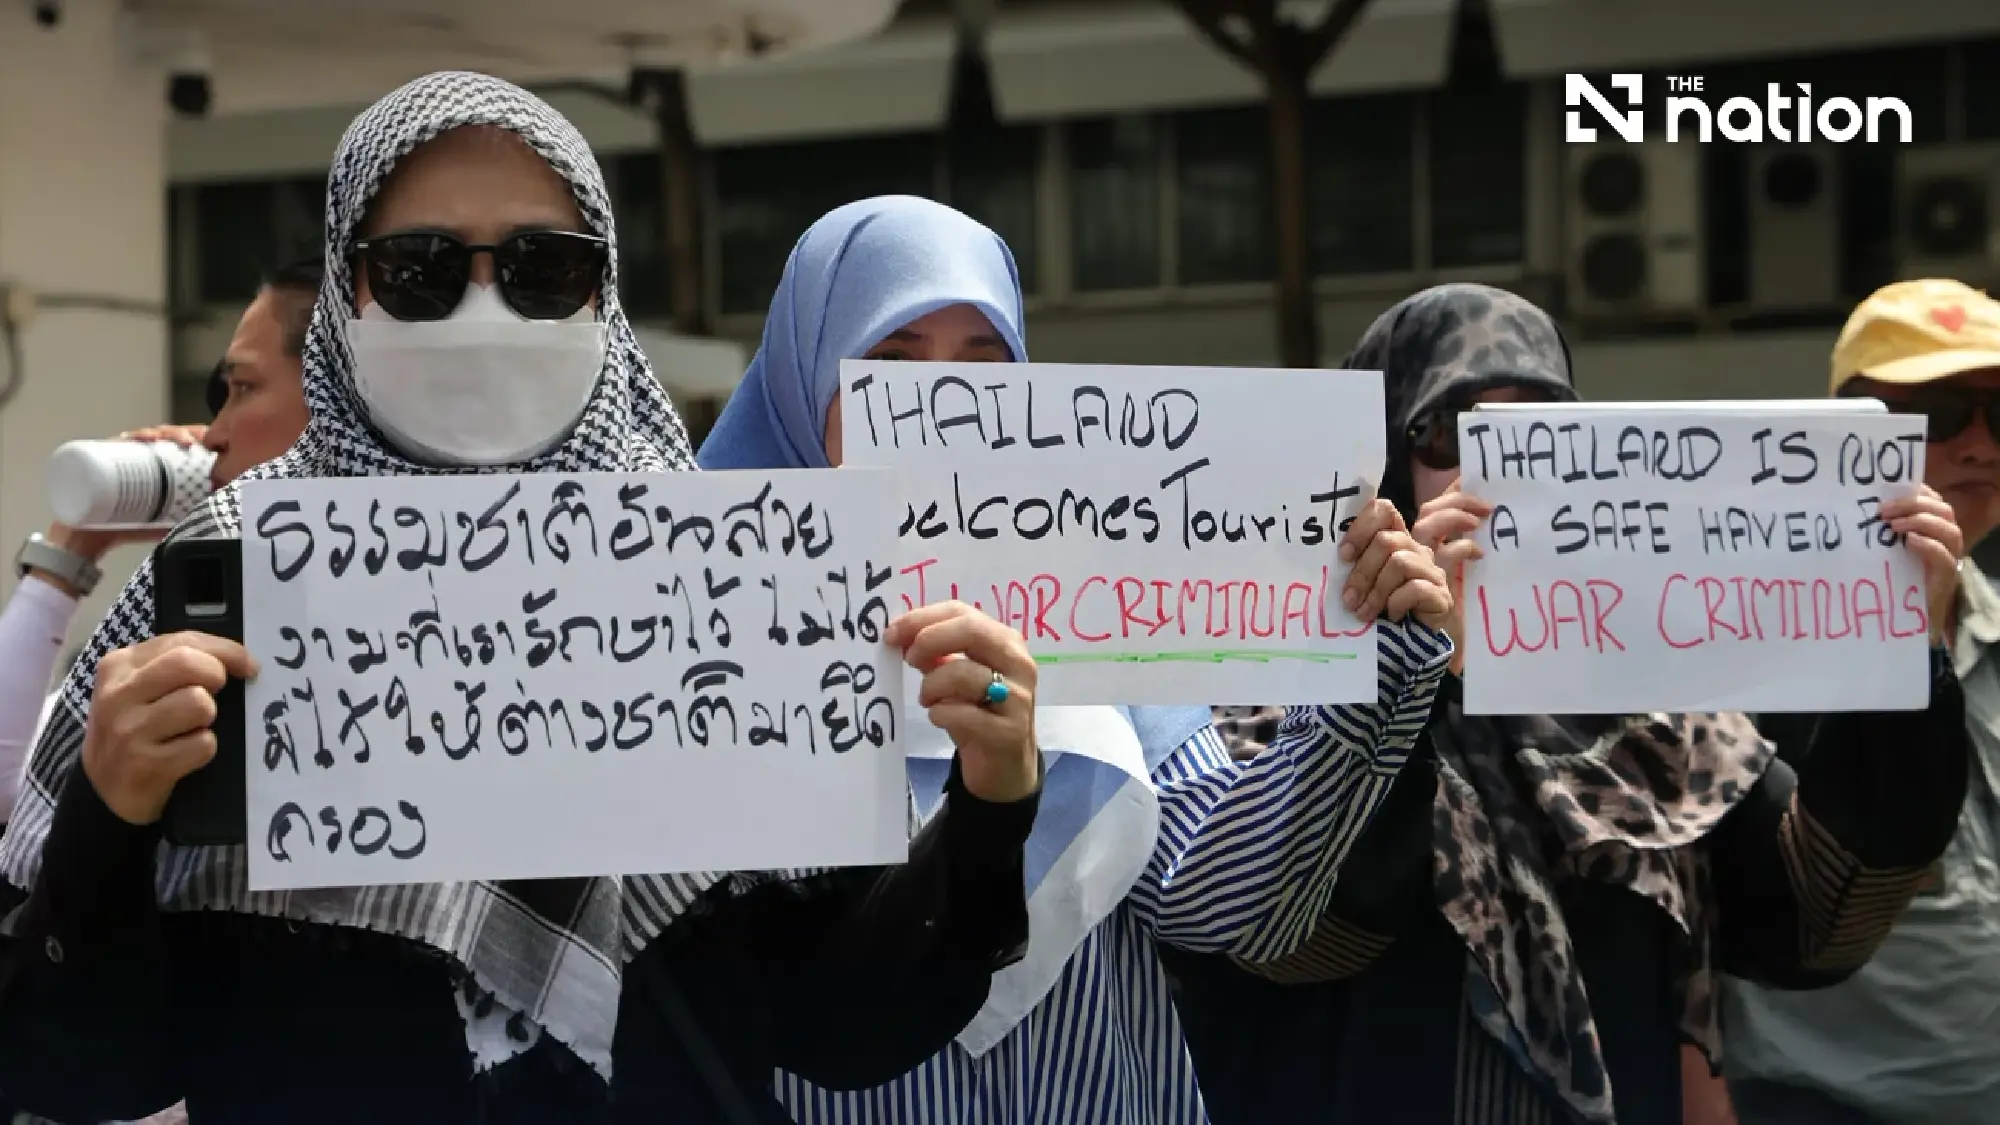 THE
nation
ธรรมชาติอันสวย
งามที่เรารักษาไว้ ไม่ได้
มีไว้ให้ต่างชาติมายึด
ครอง
THAILAND
welcomes Tourists
WAR CRIMINALS
THAILAND IS NOT
A SAFE HAVEN FOR
WAR CRIMINALS